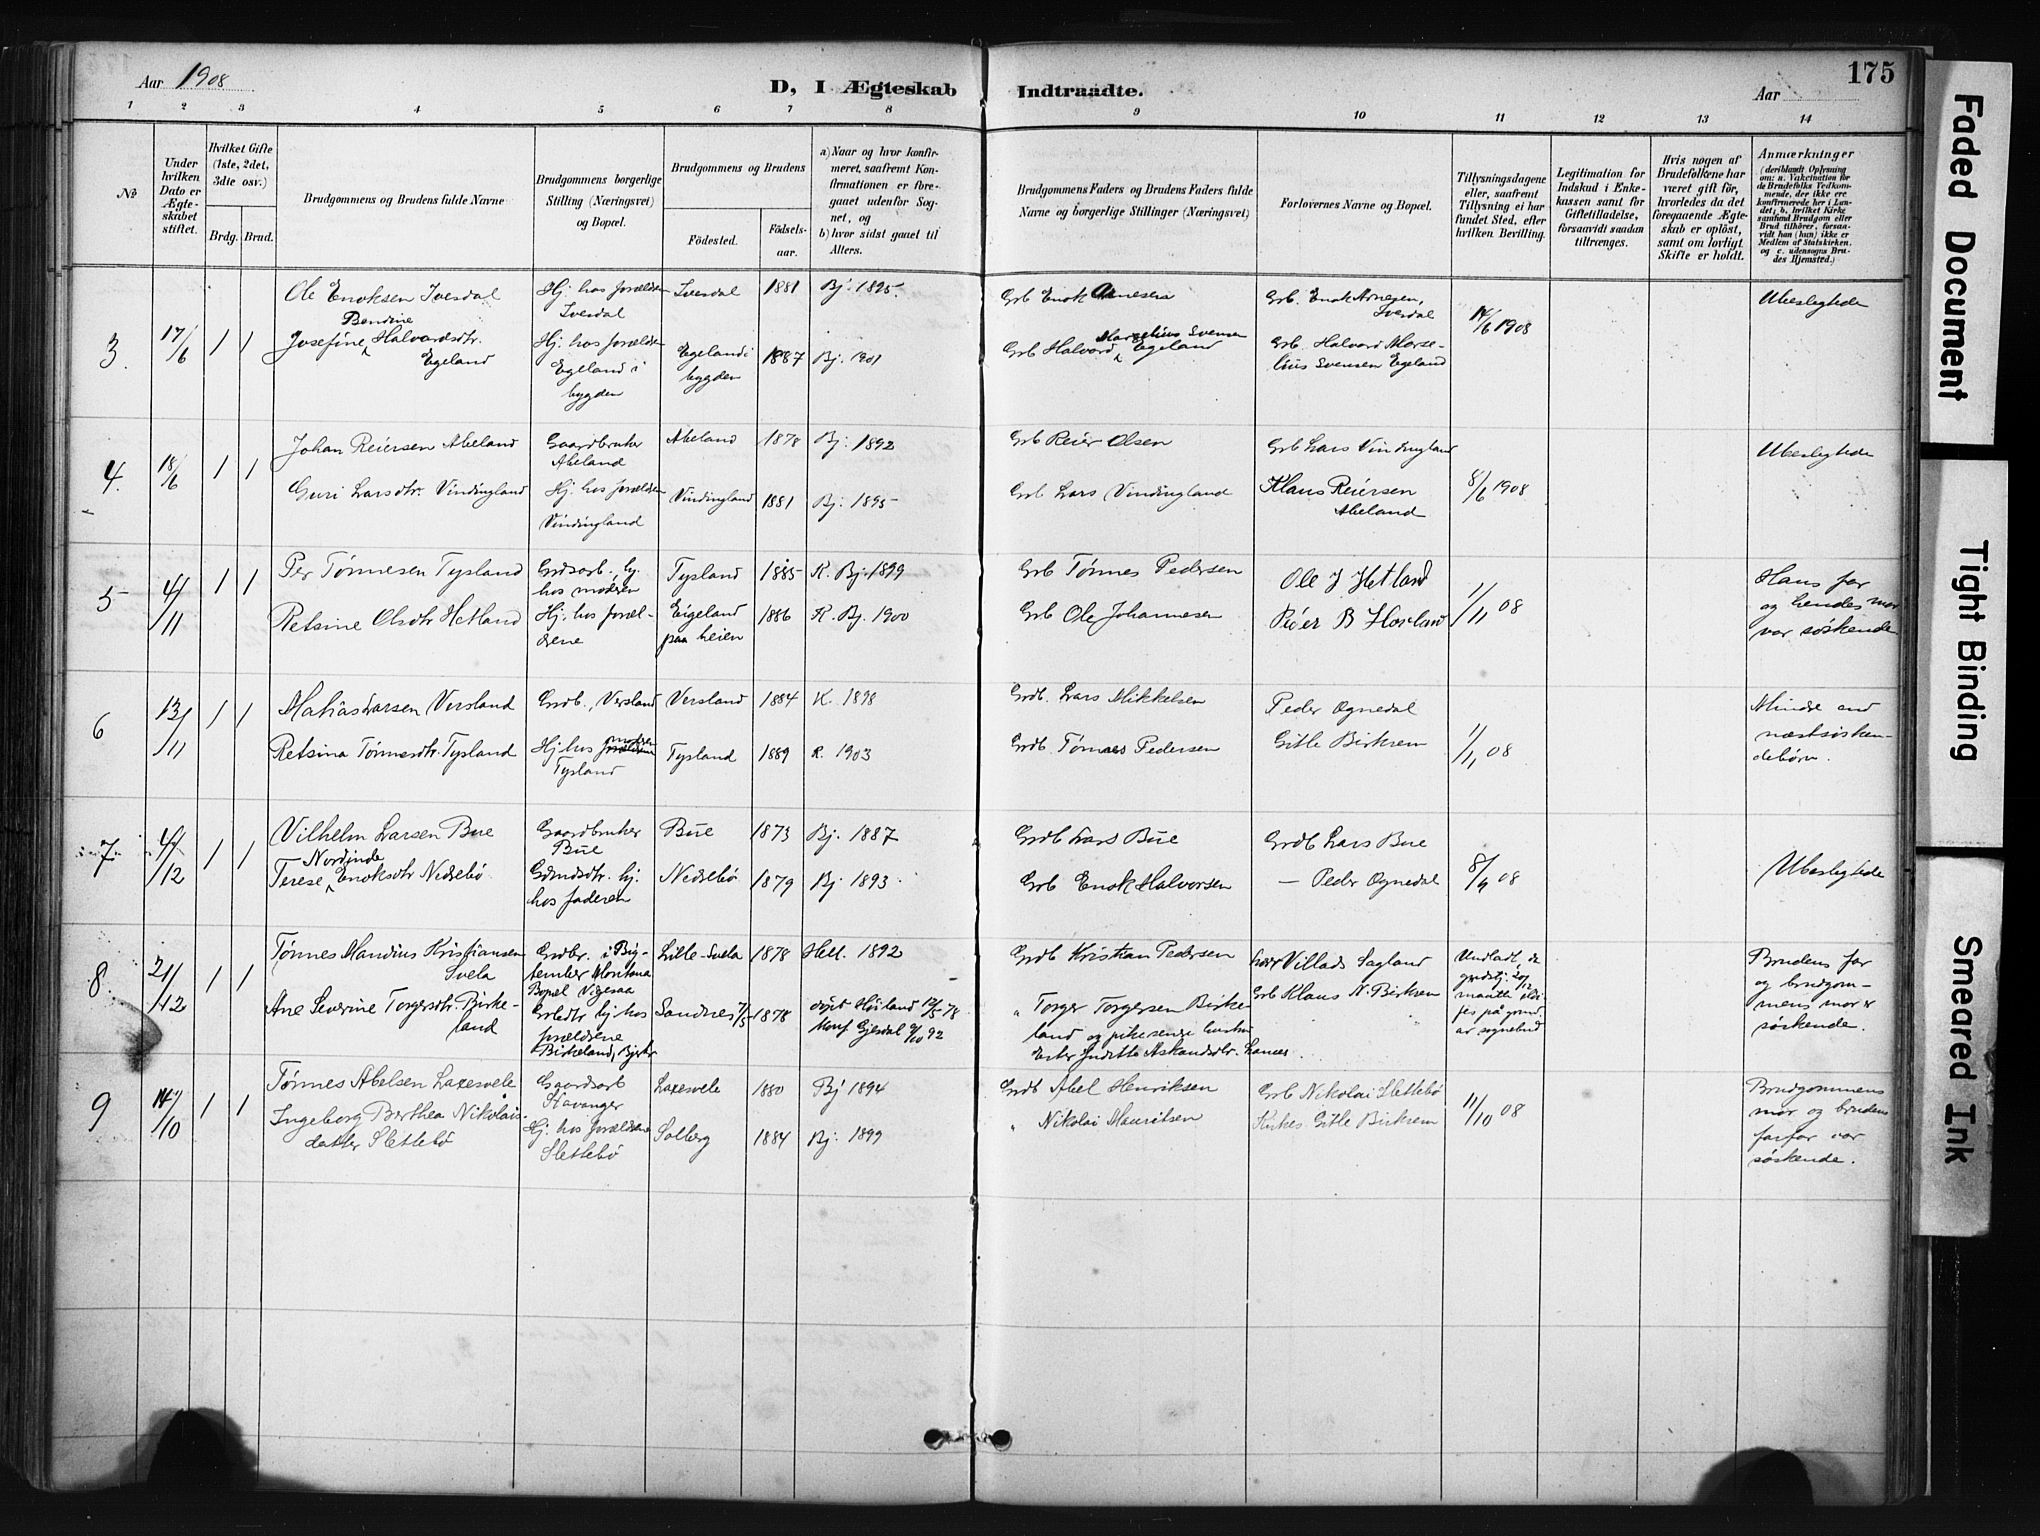 Aar 1908
D, I Ægteskab Indtraadte.
Aar
175
1 2 3 4 5 6 7 8 9 10 11 12 13 14
No
Under hvilken Dato er Ægteskabet stiftet.
Hvilket Gifte (1ste, 2det, 3die osv.)
Brdg. Brud.
Brudgommens og Brudens fulde Navne
Brudgommens borgerlige Stilling (Næringsvei) og Bopæl.
Brudgommens og Brudens
Födested.
Födselsaar.
a) Naar og hvor konfirmeret, saafremt Konfirmationen er foregaaet udenfor Sognet, og
b) hvor sidst gaaet til Alters.
Brudgommens Faders og Brudens Faders fulde Navne og borgerlige Stillinger (Næringsvei)
Forlovernes Navne og Bopæl.
Tillysningsdagene eller, saafremt Tillysning ei har fundet Sted, efter hvilken Bevilling.
Legitimation for Indskud i Enkekassen samt for Giftetilladelse, forsaavidt saadan tiltrænges.
Hvis nogen af Brudefolkene har været gift før, hvorledes da det foregaaende Ægteskab er oplöst, samt om lovligt Skifte er holdt.
Anmærkninger
(deriblandt Oplysning om: a. Vakcination for de Brudefolks Vedkommende, der ikke ere konfirmerede her i Landet; b. hvilket Kirkesamfund Brudgom eller Brud tilhörer, forsaavidt han (hun) ikke er Medlem af Statskirken. og c. udensogns Brudes Hjemsted.)
3. 17/6 1 1
Ole Enoksen Ivesdal
Hj. hos forældre Ivesdal
Ivesdal 1881 Bj. 1895.
Grb Enok Arnesen
Grb. Enok Arnesen, Ivesdal
14/6 1908
Ubeslegtede
Josefine Bendine Halvardsdtr. Egeland
Hj. hos forældre Egeland i bygden
Egeland i bygden 1887 Bj. 1901
Grb Halvord Marselius Svensen Egeland
Grb. Halvord Marselius Svensen Egeland
4. 18/6 1 1
Johan Reiersen Abeland
Gaardbruker Abeland
Abeland 1878 Bj. 1892
Grb Reier Olsen
Grb Lars Vindingland
8/6 1908
Ubeslegtede
Guri Larsdtr. Vindingland
Hj. hos forældre Vindingland
Vindingland 1881 Bj. 1895
Grb. Lars Vindingland
Klaus Reiersen Abeland
5 4/11 1 1
Per Tønnesen Tysland
Grdsarb. hj. hos moderen
Tysland 1885 K. Bj. 1899
Grb Tönnes Pedersen
Ole J Hetland
1/11 08
Hans far og hendes mor var söskende
Retsine Olsdtr Hetland
Hj. hos forældrene
Eigeland paa heien 1886 K. Bj. 1900
Grb Ole Johannesen
Peder B Hovland
6 13/11 1 1
Matias Larsen Versland
Grdb., Versland
Versland 1884 K. 1898
Grdb. Lars Mikkelsen
Peder Ognedal
1/11 08
Mindre end næstsöskendebörn.
Retsina Tönnesdtr. Tysland
Hj. hos modren Tysland
Tysland 1889 K. 1903
Grdb. Tönnes Pedersen
Gitle Birkrem
7 4/12 1 1
Vilhelm Larsen Bue
Gaardbruker Bue
Bue 1873 Bj. 1887
Grdb Lars Bue
Grdb Lars Bue
8/9 08
Ubeslegtede
Terese Nordinde Enoksdtr Nedrebö
Grdmdsdtr. hj. hos faderen
Nedrebö 1879 Bj 1893.
Grb Enok Halvorsen
— Peder Ognedal
8 21/12 1 1
Tønnes Mandius Kristiansen Svela
Grdbr. i Bigtember Montana Bopel Vigesaa
Lille-Svela 1878 Hell. 1892
Grdb Kristian Pedersen
Villads Sagland
Undladt,
Brudens far og brudgommens mor er söskende.
Ane Severine Torgersdtr. Birkeland
Grbdtr hj hos forældrene Birkeland, Bjerkr
Sandnes 7/5 1878
döpt Höiland 12/5 78
konf Gjesdal 9/10 92
" Torger Torgersen Birkeland og
Grb Klaus N. Birkrem
9 14/10 1 1
Tönnes Abelsen Laxesvele
Gaardsarb Stavanger
Laxesvele 1880 Bj 1894
Grdb Abel Henriksen
Grb Nikolai Slettebö
11/10 08
Brudgommens mor og brudens farfar var söskende.
Ingeborg Berthea Nikolaisdatter Slettebö
Hj. hos forældrene Slettebö
Solberg 1884 Bj. 1899
" Nikolai Mauritsen
Kirkes. Gitle Birkrem
Faded Document
Tight Binding
Smeared Ink